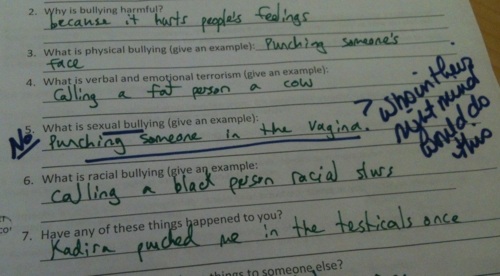 2. Why is bullying harmful?
because it hurts people's feelings
3. What is physical bullying (give an example): Punching someone's
face
4. What is verbal and emotional terrorism (give an example):
Calling a fat person a cow
No
5. What is sexual bullying (give an example):
Punching someone in the vagina.
? who in their
right mind
would do
this
6. What is racial bullying (give an example:
Calling a black person racial slurs
7. Have any of these things happened to you?
Kadira puched me in the testicals once
things to someone else?